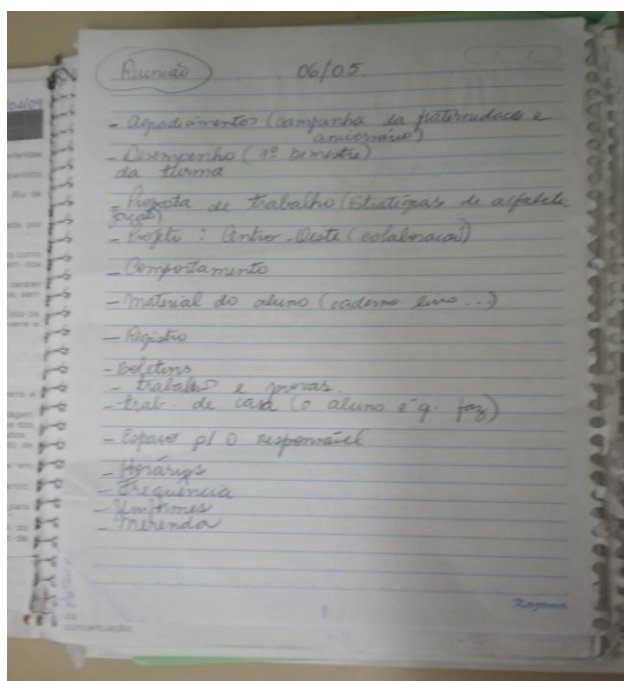 Reunião 06/05
- Agradecimentos (campanha da fraternidade e
aniversário)
- Desempenho (1º bimestre)
da turma
- Proposta de trabalho (Estratégias de alfabeti
zação)
- Projeto: Centro-Oeste (colaboração)
- Comportamento
- Material do aluno (caderno livro...)
- Registro
- Boletins
- trabalhos e provas.
- trab. de casa (o aluno é q. faz)
- Espaço p/ o responsável
- Horários
- Frequência
- Uniformes
- Merenda